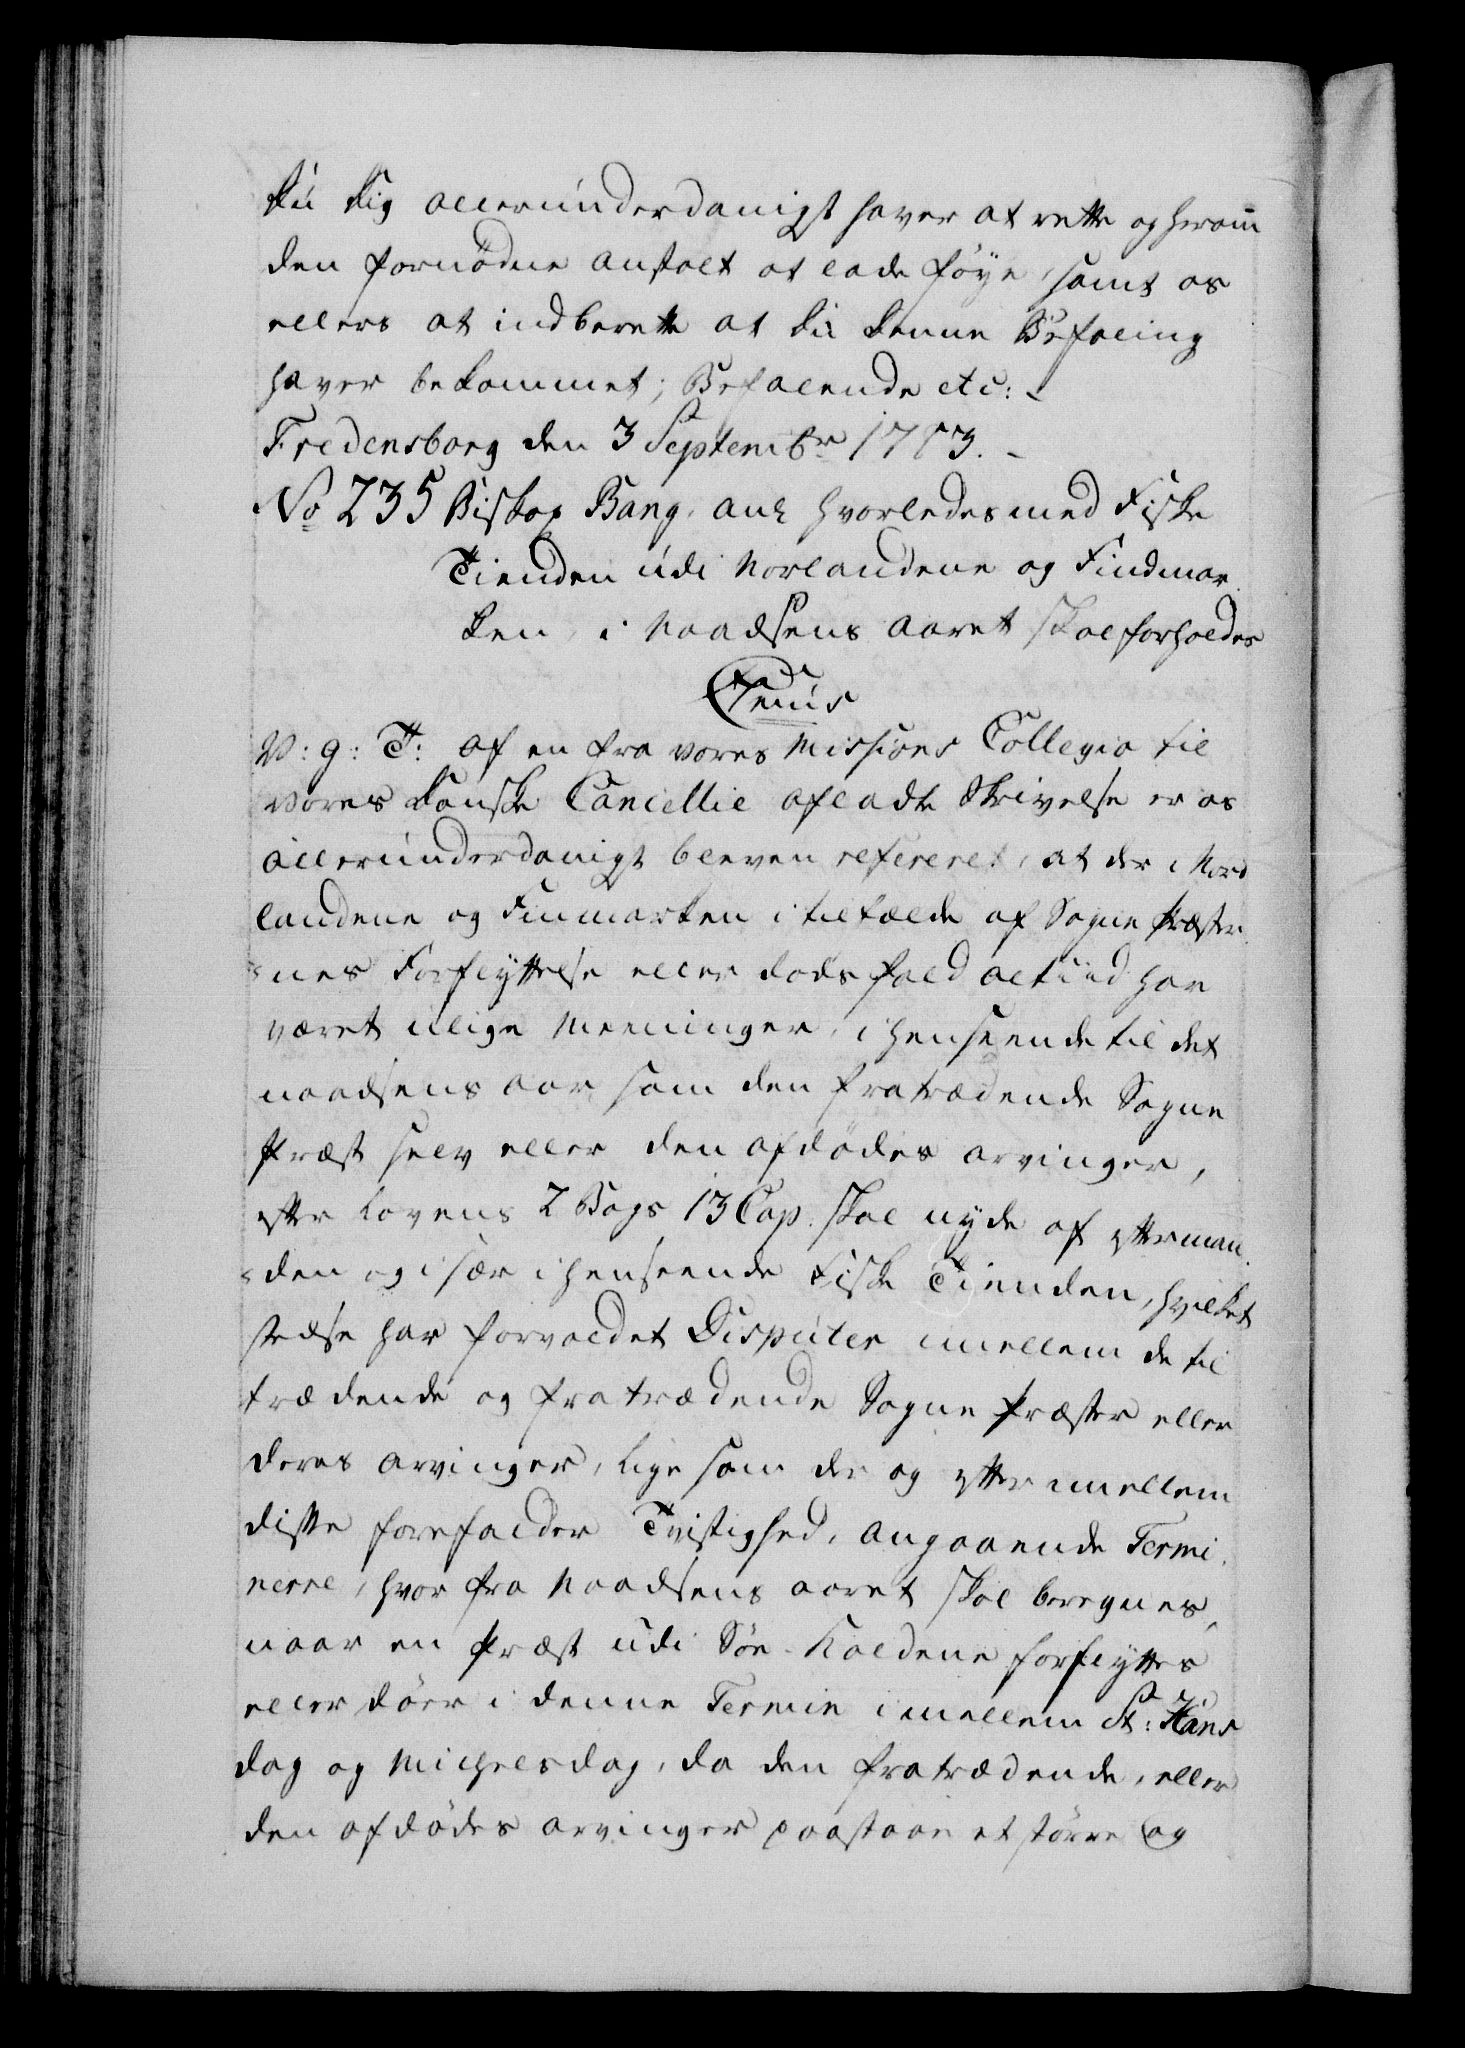 du dig allerunderdanigst haver at rette og herom
den fornødne anstalt at lade føye, samt os
ellers at indberette at du denne Befaling
haver bekommet; Befalende etc:
Fredensborg den 3 Septembr 1773.
No 235 Biskop Bang, anl hvorledes med Fiske
Tienden udi Norlandene og Findmar
ken, i Naadsens aaret skal forholdes
Cr: 7nus
V: g: T: af en fra vores Missions Collegio til
vores danske Cancellie afladte Skrivelse er os
allerunderdanigst bleven refereret, at der i Nord
landene og Finmarken i tilfælde af Sogne Præster
nes Forflyttelse eller dødsfald altiid har
været ulige Meeninger, i henseende til det
naadsens aar som den fratrædende Sogne
Præst selv eller den afdødes arvinger,
efter Lovens 2 Bogs 13 Cap. skal nyde af efterman
den og i sær i henseende Fiske Tienden, hvilket
stedse har forvoldet Disputer imellem de til
trædende og fratrædende Sogne Præster eller
deres arvinger, lige som der og efter imellem
disse forefalder Tvistighed, angaaende Termi
nerne, hvor fra Naadsens aaret skal beregnes,
naar en Præst udi Søe-Kaldene forflyttes
eller døer i denne Termin imellem St: Hans
dag og Michelsdag, da den fratrædende, eller
den afdødes arvinger paastaae et større og